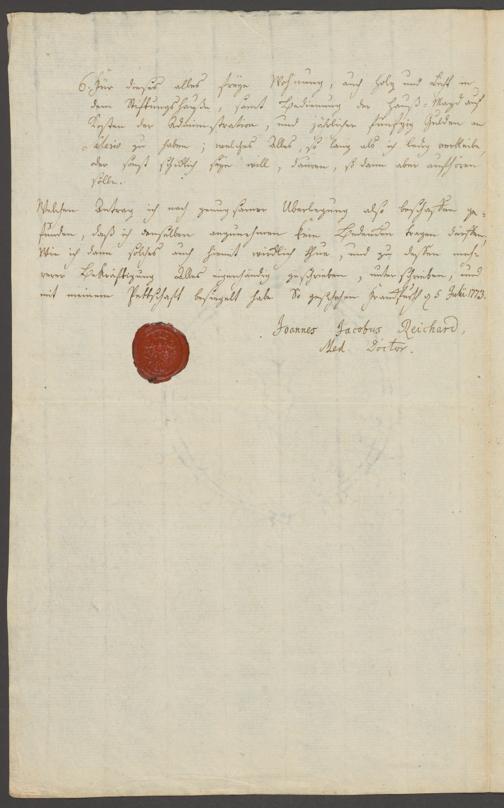 6. Für dieses alles freye Wohnung, auch Holz und Licht in
dem Stiftungshauße, samt Bedienung der Hauß-Magd auf
Kosten der Administration, und jährlicher fünfzig Gulden an
zu haben; welches alles, so lang als ich ledig verbleibe,
oder sonst schicklich seyn will, dauren, so dann aber aufhören
solle.
Welchen Antrag ich nach genugsamer Überlegung also beschaffen ge-
funden, daß ich denselben anzunehmen kein Bedencken tragen dürffen,
Wie ich dann solches auch hiemit würcklich thue, und zu dessen meh-
rerer Bekräfftigung alles eigenhändig geschrieben, unterschrieben, und
mit meinem Pettschafft besiegelt habe. So geschehen Franckfurth d. 5 Juli 1773.
Joannes Jacobus Reichard,
Med. Doctor.